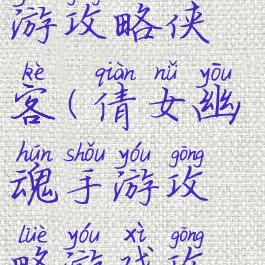 游攻略侠
kè qiàn nǚ yōu
客(倩女幽
hún shǒu yóu gōng
魂手游攻
lüè yóu xì gōng
略游戏攻